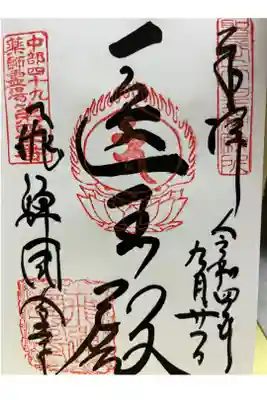 奉拝
令和四年
九月廿
医王殿
中部四十九
薬師霊場
飛騨国分寺